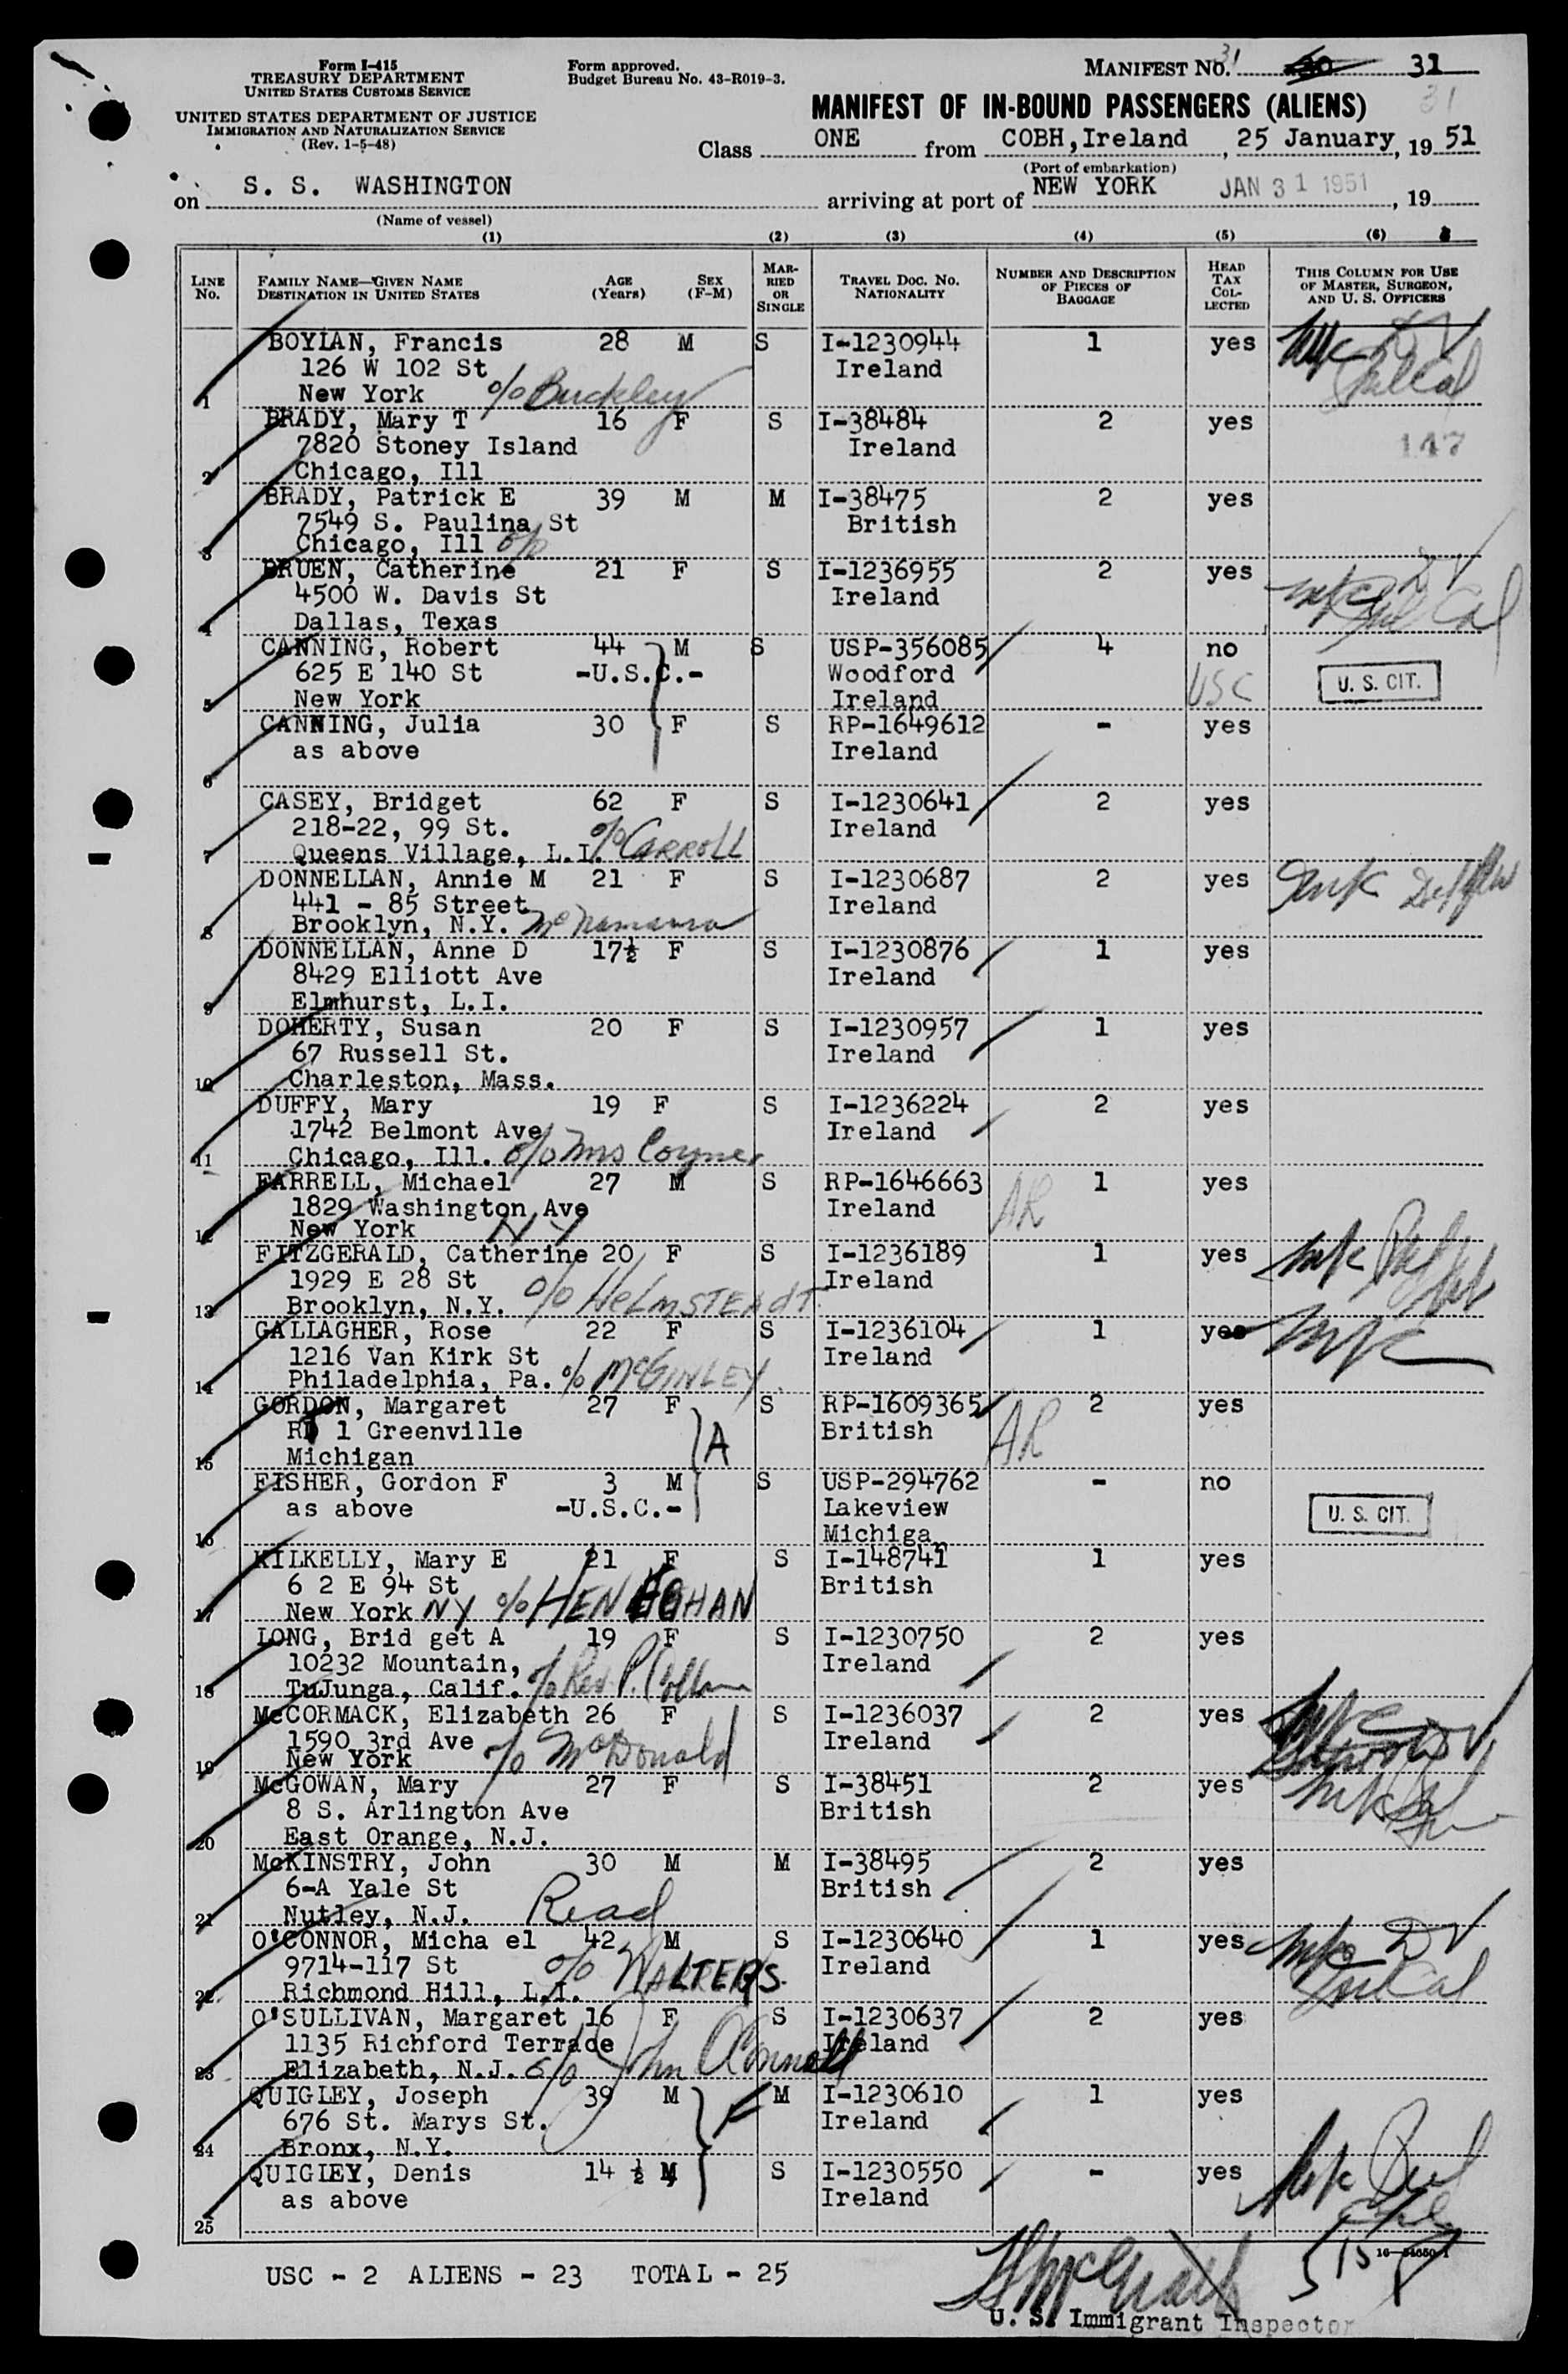 Form I-415
TREASURY DEPARTMENT
UNITED STATES CUSTOMS SERVICE
UNITED STATES DEPARTMENT OF JUSTICE
IMMIGRATION AND NATURALIZATION SERVICE
(Rev. 1-5-48)
Form approved.
Budget Bureau No. 43-R019-3.
MANIFEST NO. 31 30 31
MANIFEST OF IN-BOUND PASSENGERS (ALIENS) 31
Class ONE from COBH, Ireland, 25 January, 19 51
(Port of embarkation)
on S. S. WASHINGTON arriving at port of NEW YORK JAN 31 1951, 19
(Name of vessel)
(1) (2) (3) (4) (5) (6)
LINE No. FAMILY NAME—GIVEN NAME DESTINATION IN UNITED STATES AGE (Years) SEX (F-M) MARRIED OR SINGLE TRAVEL DOC. NO. NATIONALITY NUMBER AND DESCRIPTION OF PIECES OF BAGGAGE HEAD TAX COLLECTED THIS COLUMN FOR USE OF MASTER, SURGEON, AND U. S. OFFICERS
BOYLAN, Francis 28 M S I-1230944 1 yes
126 W 102 St Ireland
1 New York c/o Buckley
BRADY, Mary T 16 F S I-38484 2 yes
7820 Stoney Island Ireland 147
2 Chicago, Ill
BRADY, Patrick E 39 M M I-38475 2 yes
7549 S. Paulina St British
3 Chicago, Ill
BRUEN, Catherine 21 F S I-1236955 2 yes
4500 W. Davis St Ireland
4 Dallas, Texas
CANNING, Robert 44 M S USP-356085 4 no
625 E 140 St -U.S.C.- Woodford USC U. S. CIT.
5 New York Ireland
CANNING, Julia 30 F S RP-1649612 - yes
as above Ireland
6
CASEY, Bridget 62 F S I-1230641 2 yes
218-22, 99 St. Ireland
7 Queens Village, L.I. c/o CARROLL
DONNELLAN, Annie M 21 F S I-1230687 2 yes
441 - 85 Street Ireland
8 Brooklyn, N.Y. McNamara
DONNELLAN, Anne D 17½ F S I-1230876 1 yes
8429 Elliott Ave Ireland
9 Elmhurst, L.I.
DOHERTY, Susan 20 F S I-1230957 1 yes
67 Russell St. Ireland
10 Charleston, Mass.
DUFFY, Mary 19 F S I-1236224 2 yes
1742 Belmont Ave Ireland
11 Chicago, Ill. c/o Mrs Coyne
FARRELL, Michael 27 M S RP-1646663 1 yes
1829 Washington Ave Ireland AR
12 New York NY
FITZGERALD, Catherine 20 F S I-1236189 1 yes
1929 E 28 St Ireland
13 Brooklyn, N.Y. c/o HELMSTEADT
GALLAGHER, Rose 22 F S I-1236104 1 yes
1216 Van Kirk St Ireland
14 Philadelphia, Pa. c/o McGINLEY
GORDON, Margaret 27 F S RP-1609365 2 yes
RD 1 Greenville A British AR
15 Michigan
FISHER, Gordon F 3 M S USP-294762 - no
as above -U.S.C.- Lakeview U. S. CIT.
16 Michiga
KILKELLY, Mary E 21 F S I-148741 1 yes
6 2 E 94 St British
17 New York NY c/o HENEGHAN
LONG, Brid get A 19 F S I-1230750 2 yes
10232 Mountain, Ireland
18 TuJunga, Calif. c/o Rev P.
McCORMACK, Elizabeth 26 F S I-1236037 2 yes
1590 3rd Ave Ireland
19 New York c/o McDonald
McGOWAN, Mary 27 F S I-38451 2 yes
8 S. Arlington Ave British
20 East Orange, N.J.
McKINSTRY, John 30 M M I-38495 2 yes
6-A Yale St British
21 Nutley, N.J. Read
O'CONNOR, Micha el 42 M S I-1230640 1 yes
9714-117 St Ireland
22 Richmond Hill, L.I. c/o WALTERS.
O'SULLIVAN, Margaret 16 F S I-1230637 2 yes
1135 Richford Terrade Ireland
23 Elizabeth, N.J. c/o John O'Connell
QUIGLEY, Joseph 39 M M I-1230610 1 yes
676 St. Marys St. Ireland
24 Bronx, N.Y.
QUIGLEY, Denis 14 ½ M S I-1230550 - yes
as above Ireland
25
USC - 2 ALIENS - 23 TOTAL - 25
U. S. Immigrant Inspector